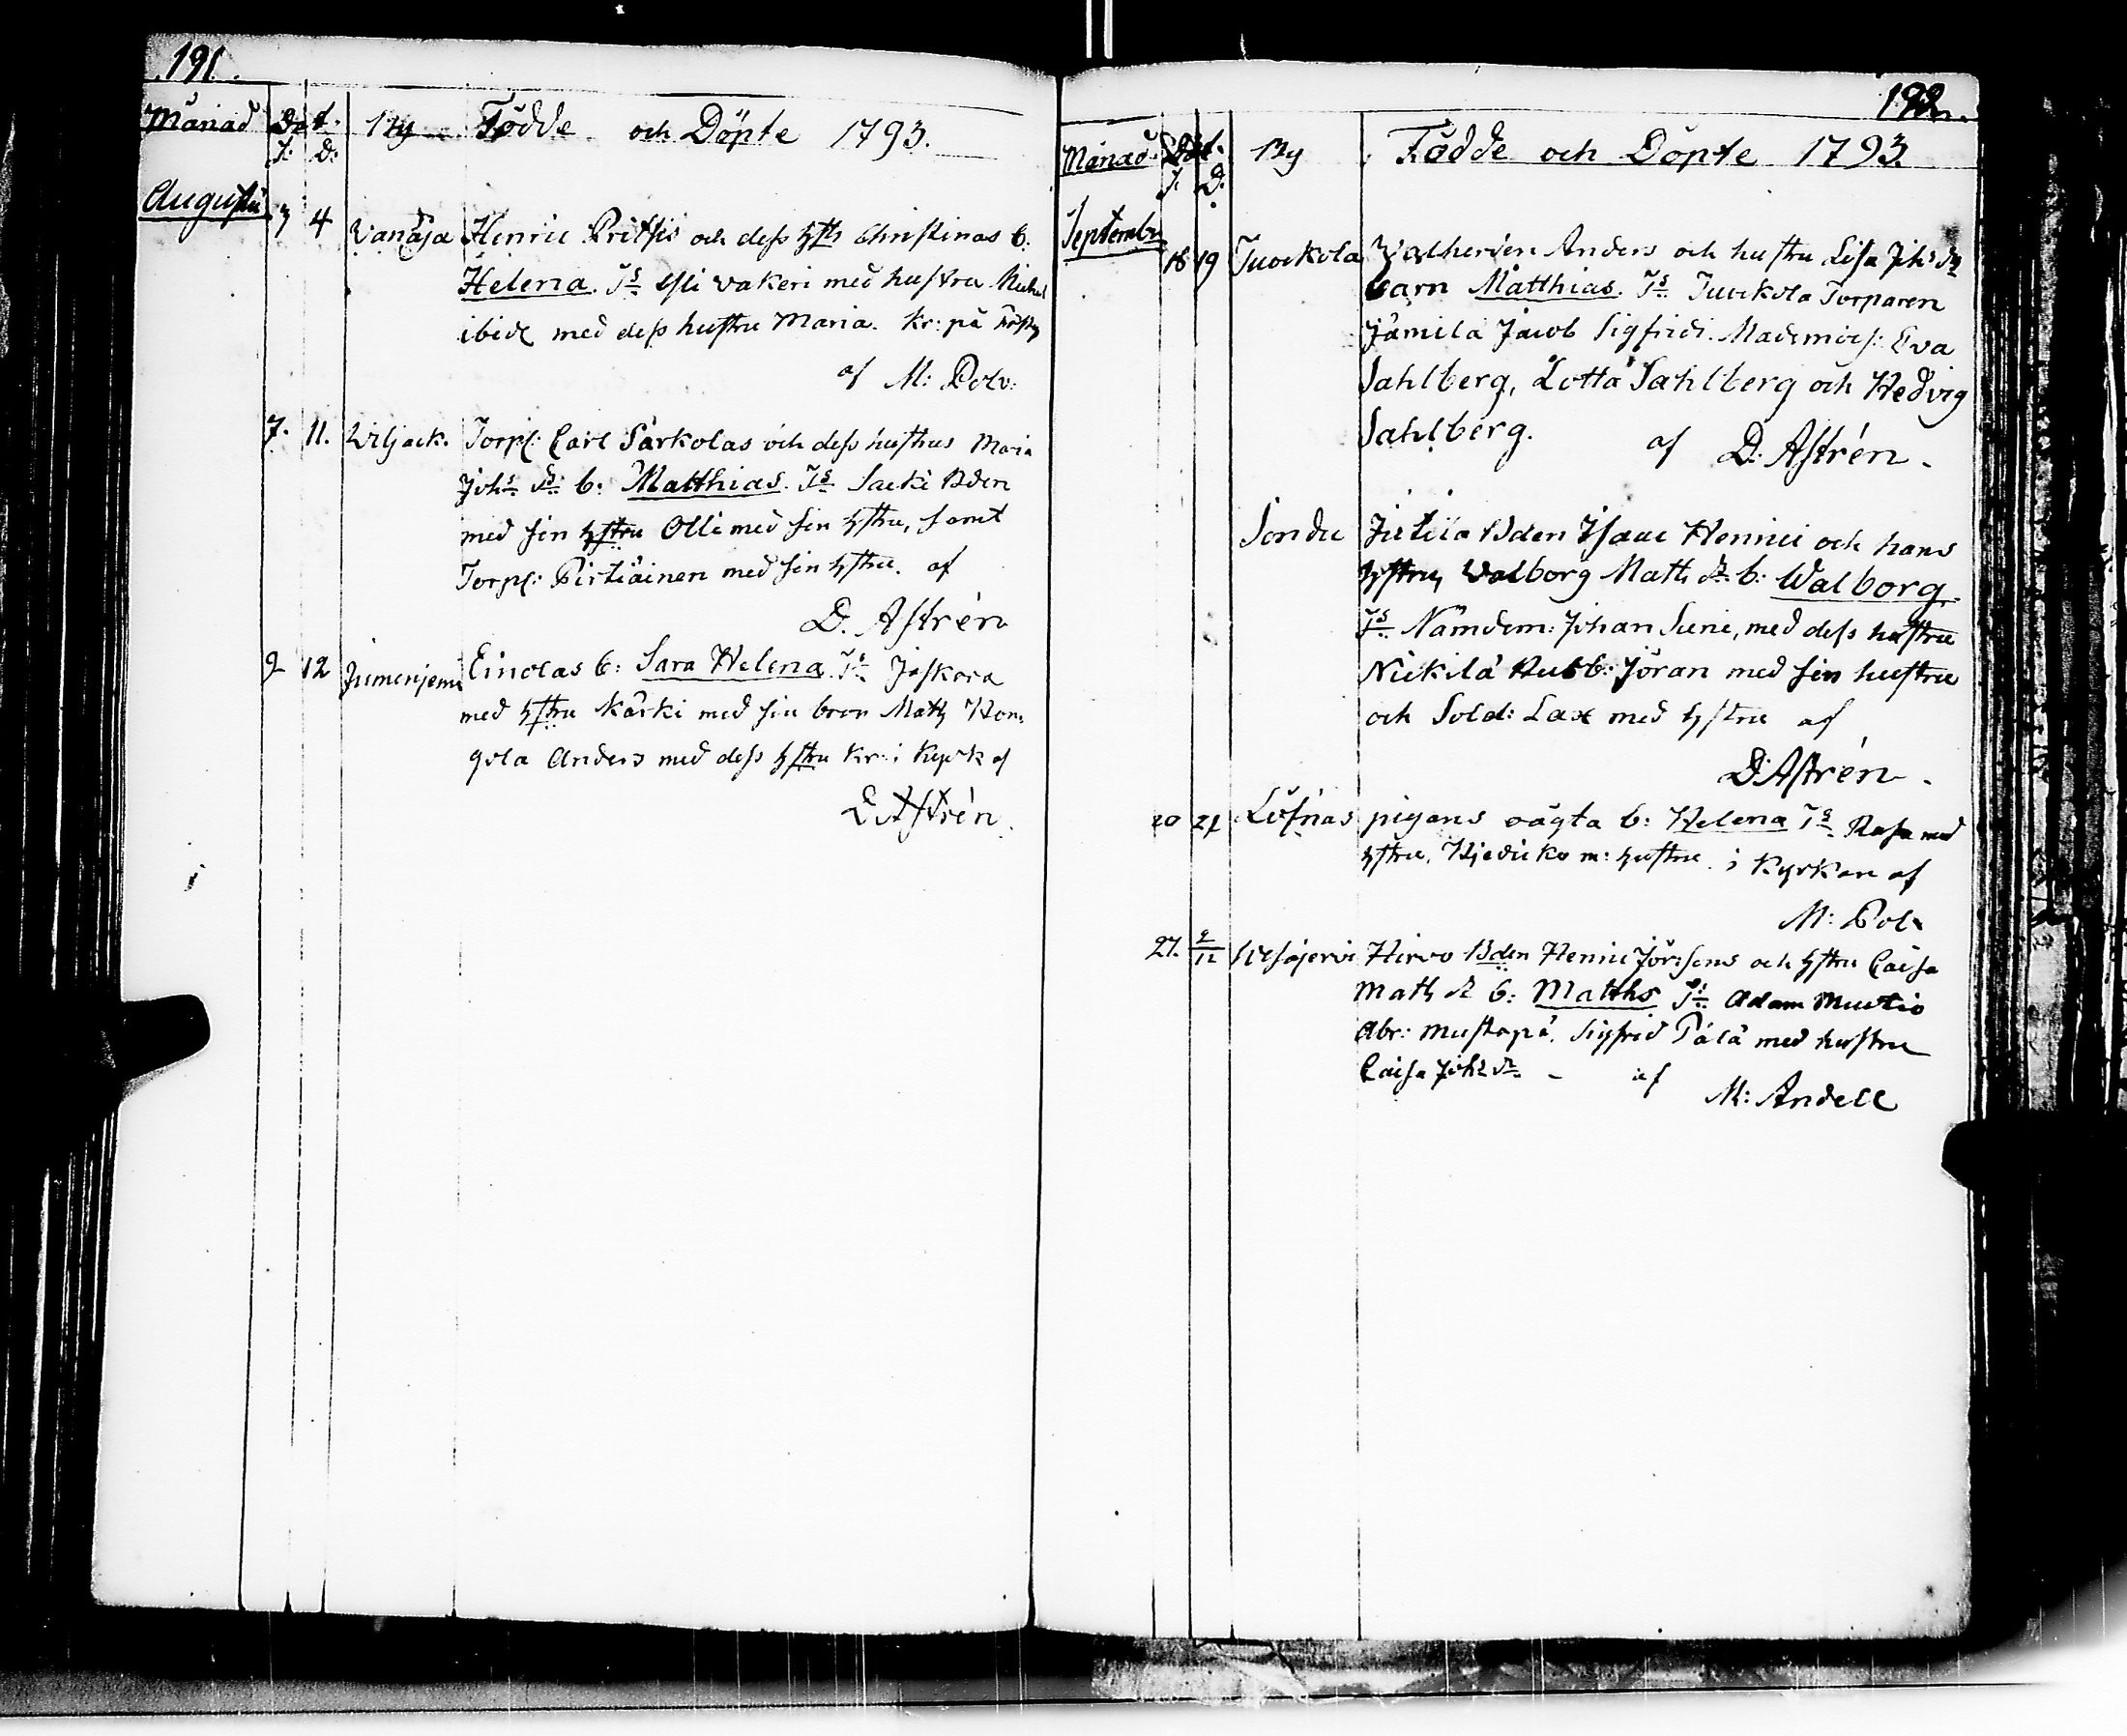 191.
Månad Dat. By Födde och Döpte 1793.
F. D.
Augusti
3 4 Vanaja Henric Prittsis och dess hstrs Christinas b:
Helena. Ts Esli vakeri med hustru Michel
ibid med dess hustru Maria. Kr: på
af M: Polv:
7. 11. Wiljack. Torp: Carl Särkolas och dess hustrus Maria
Johs dr b: Matthias. Ts Sacki Bden
med sin hstru Olli med sin hstru, samt
Torp: Pirtiäinen med sin hstru. af
D. Astrén
9 12 Jumenjemi Einolas b: Sara Helena. Ts Jaskara
med hstru Kärki med sin bror Math Hon
gola Anders med dess hstru Kr: i Kyrk af
E Astrén.
192.
Månad. Dat. By Födde och Döpte 1793.
F. D.
Septembr
18 19 Tuorkola Anders och hustru Lisa Johs dr
barn Matthias. Ts Tuorkola Torparen
Jämilä Jacob Sigfridi. Mademois: Eva
Sahlberg, Lotta Sahlberg och Hedvig
Sahlberg. af D: Astrén.
Sondu Jutila Bden Isaac Henrici och hans
hstru, Walborg Math dr b: Walborg.
Ts Nämdem: Johan Suni, med dess hustru
Nickilä Rusb: Jöran med sin hustru
och Sold: Lax med hstru af
D: Astrén.
20 21 Löfnäs pigans oägta b: Helena Ts Rasa med
hstru, Hjedicko m: hustru i Kyrkan af
M: Polv
27. 2/12 Wesajervi Hirvo Bden Henric Jör:sons och hstru Caisa
Math dr b: Matths Ts Adam Mustio
Abr: Mustapä. Sigfrid Pälä med hustru
Caisa Johs dr. - af M: Andell